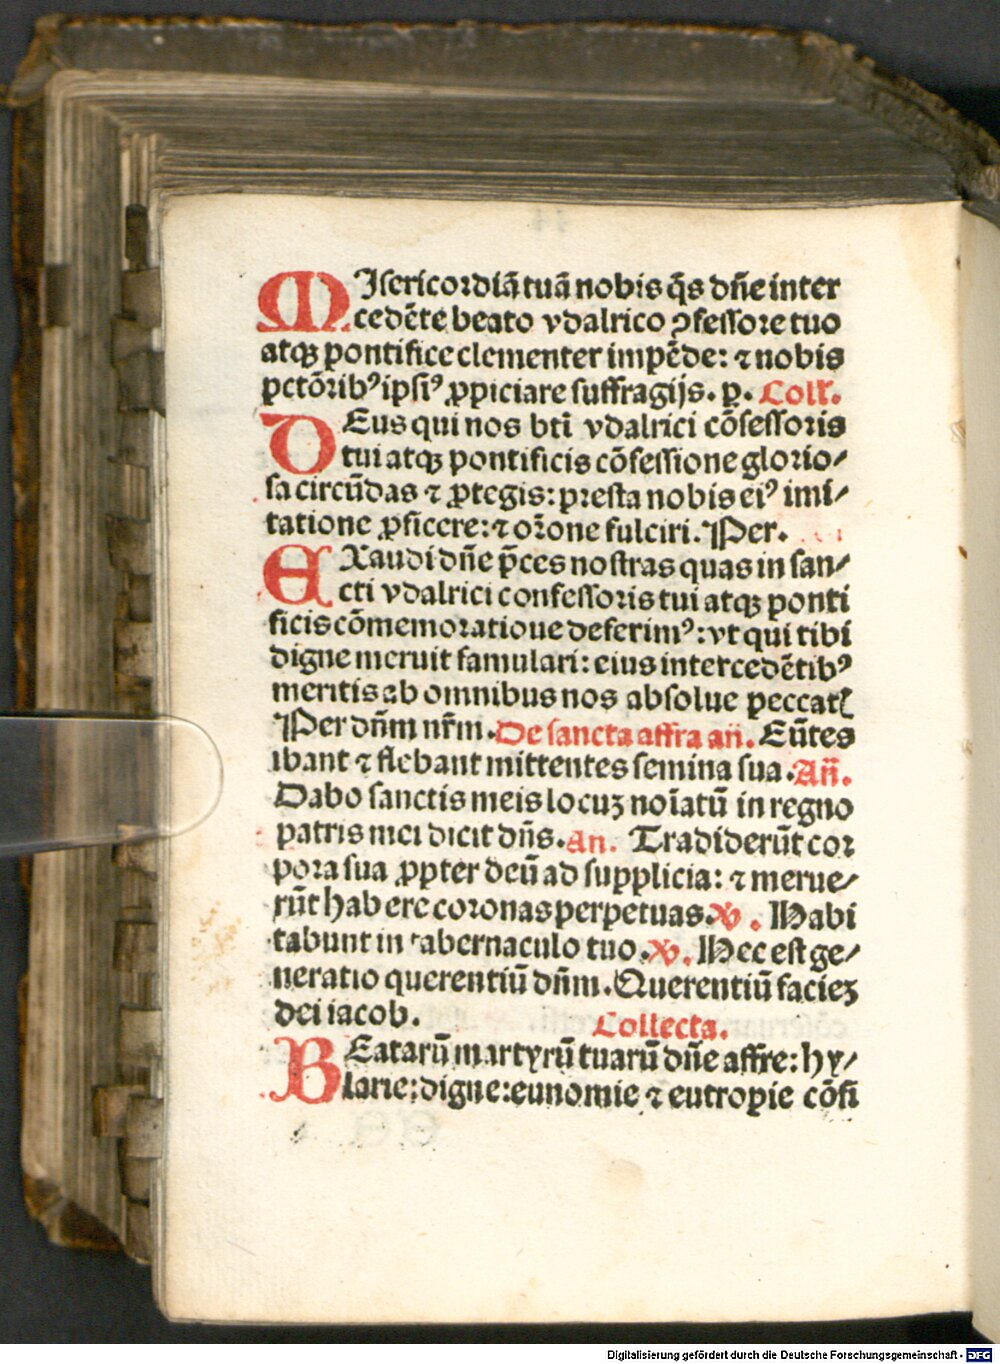 MIsericordiā tuā nobis q̄s dn̄e inter
cedēte beato vdalrico ꝯfessore tuo
atqꝫ pontifice clementer impēde: ⁊ nobis
pctōribꝰ ipsiꝰ ꝓpiciare suffragijs. p. Coll̄.
DEus qui nos bt̄i vdalrici cōfessoris
tui atqꝫ pontificis cōfessione glorio⸗
sa circūdas ⁊ ꝓtegis: presta nobis eiꝰ imi⸗
tatione ꝓficere: ⁊ or̄one fulciri. Per.
EXaudi dn̄e p̄ces nostras quas in san⸗
cti vdalrici confessoris tui atqꝫ ponti
ficis cōmemoratioue deferimꝰ: vt qui tibi
digne meruit famulari: eius intercedētibꝰ
meritis ab omnibus nos absolue peccatꝭ
Per dn̄m nr̄m. De sancta affra an̄. Eūtes
ibant ⁊ flebant mittentes semina sua. An̄.
Dabo sanctis meis locuꝫ noīatū in regno
patris mei dicit dn̄s. An. Tradiderūt cor
pora sua ꝓpter deū ad supplicia: ⁊ merue⸗
rūt habere coronas perpetuas. ꝟ. Habi
tabunt in tabernaculo tuo. ꝟ. Hec est ge⸗
neratio querentiū dn̄m. Querentiū facieꝫ
dei iacob. Collecta.
BEatarū martyrū tuarū dn̄e affre: hy⸗
larie: digne: eunomie ⁊ eutropie cōfi
Digitalisierung gefördert durch die Deutsche Forschungsgemeinschaft - DFG